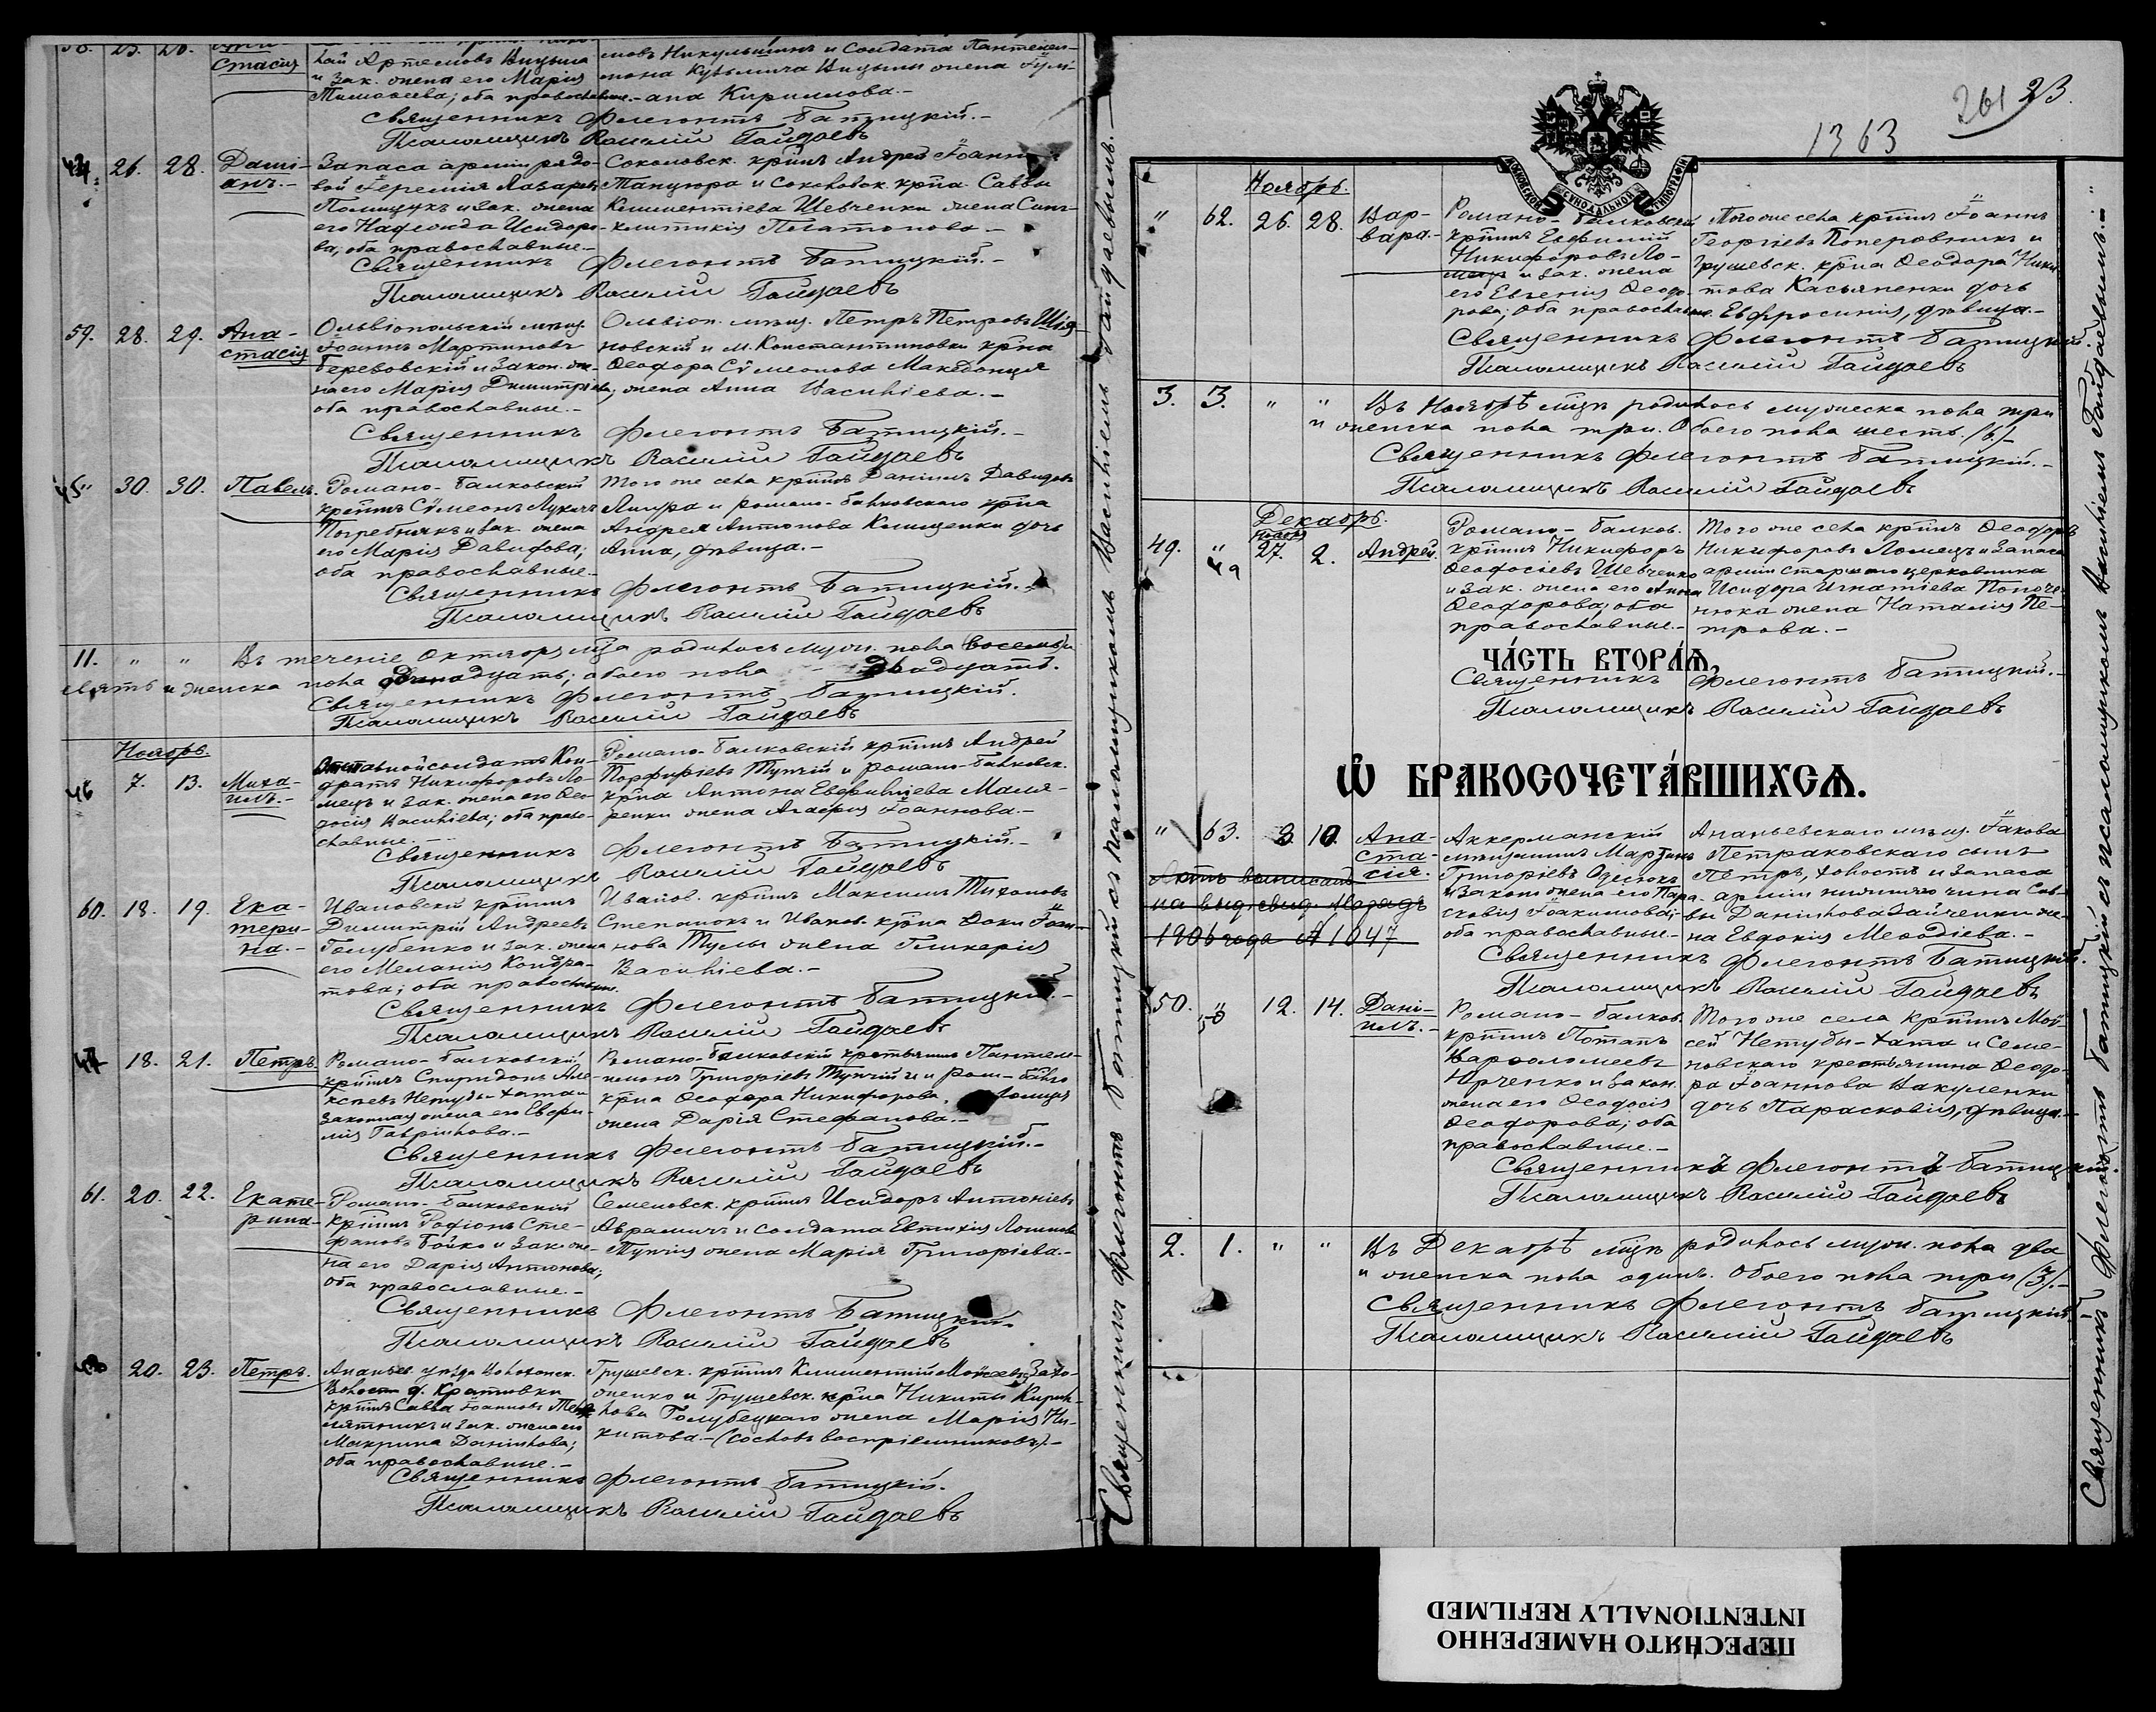 стасія
кой Артемовъ
и Зак. жена его Марія
Тимоѳеева; оба православные.-
мовъ Никульшинъ и Солдата Пантелей-
мона Кузьмича жена
Кириллова.-
Священникъ Флегонтъ Батицкій.-
Псаломщикъ Василій Гайдаевъ
44. 26. 28. Дамі-
анъ.-
Запаса арміи рядо-
вой Іеремія Лазаревъ
и зак. жена
его Исидоро-
ва; оба православные.-
Соколовск. крпнъ Андрей Іоанн
и Соколовск. крпна Саввы
Климентіева Шевченки жена Син-
клитикія Платонова.-
Священникъ Флегонтъ Батицкій.-
Псаломщикъ Василій Гайдаевъ
59. 28. 29. Ана-
стасія
Ольвіопольскій мѣщ.
Іоаннъ Мартиновъ
Березовскій и Закон. же-
на его Марія Димитріева;
оба православные.-
Ольвіоп. мѣщ. Петръ Петровъ
новскій и м. Константиновки крпна
Ѳеодора Сѵмеонова Македонца
жена Анна Васильева.-
Священникъ Флегонтъ Батицкій.-
Псаломщикъ Василій Гайдаевъ
45 30. 30. Павелъ.
Романо-Балковскій
крпнъ Сѵмеонъ Лукинъ
Погребнякъ и зак. жена
его Марія Давидова;
оба православные.-
Того же села крпнъ Даніилъ Давидовъ
и романо-балковскаго крпна
Андрея Антонова Клищенки дочь
Анна, дѣвица.-
Священникъ Флегонтъ Батицкій.-
Псаломщикъ Василій Гайдаевъ
11. " " Въ теченіе Октября мца родилось муж. пола восемь и
женска пола двѣнадцать; обоего пола двадцать.
Священникъ Флегонтъ Батицкій.
Псаломщикъ Василій Гайдаевъ
Ноябрь.
46 7. 13. Миха-
илъ.-
Отставной солдатъ Кон-
дратъ Никифоровъ Ло-
мецъ и зак. жена его Ѳео-
досія Васильева; оба право-
славные.-
Романо-Балковскій крпнъ Андрей
Порфиріевъ Тупчій и романо-балковск.
крпна Антона Маля-
ренки жена Агафія Іоаннова.-
Священникъ Флегонтъ Батицкій.-
Псаломщикъ Василій Гайдаевъ
60. 18. 19. Ека-
тери-
на.-
Ивановскій крпнъ
Димитрій Андреевъ
Голубенко и зак. жена
его Меланія Кондра-
това; оба православные.
Иванов. крпнъ Максимъ Тихоновъ
Степанюкъ и Иванов. крпна Іоан-
нова жена Гликерія
Васильева.-
Священникъ Флегонтъ Батицкій.-
Псаломщикъ Василій Гайдаевъ
47 18. 21. Петръ.
Романо-Балковскій
крпнъ Спиридонъ Але-
ксѣевъ Нетуды-хата и
Законная жена его Евфи-
мія Гавріилова.-
Романо-Балковскій крестьянинъ Пантеле-
имонъ Григоріевъ Тупчій и Ром-балк-го
крпна Ѳеодора Никифорова Ломца
жена Дарія Стефанова.-
Священникъ Флегонтъ Батицкій.-
Псаломщикъ Василій Гайдаевъ
61. 20. 22. Екате-
рина-
Романо-Балковскій
крпнъ Родіонъ Сте-
фановъ Бойко и Зак. же-
на его Дарія Антонова;
оба православные.-
Семеновск. крпнъ Исидоръ Антоніевъ
Аврамичъ и солдата Евтихія Логинова
Тупчія жена Марія Григоріева.-
Священникъ Флегонтъ Батицкій.-
Псаломщикъ Василій Гайдаевъ
48 20. 23. Петръ.
Ананьев. уѣзда
Волости д. Кратовки
крпнъ Савва Іоанновъ
и зак. жена его
Макрина Даніилова;
оба православные.-
Грушевск. крпнъ Климентій Моѵсеевъ Захо-
женко и Грушевск. крпна Никиты Кирил-
лова Голубецкаго жена Марія Ни-
китова.-(сословъ воспріемниковъ).-
Священникъ Флегонтъ Батицкій.
Псаломщикъ Василій Гайдаевъ
Священникъ Флегонтъ Батицкій съ псаломщикомъ Василіемъ Гайдаевымъ.-
261 23.
1363
Ноябрь.
" 62. 26. 28. Вар-
вара.-
Романо-Балковскій
крпнъ Евфимій
Никифоровъ Ло-
мецъ и зак. жена
его Евгенія Ѳеодо-
рова; оба православные.
Того же села крпнъ Іоаннъ
Георгіевъ Поперовникъ и
Грушевск. крпна Ѳеодора Ники-
това Касьяненки дочь
Евфросинія, дѣвица.-
Священникъ Флегонтъ Батицкій.
Псаломщикъ Василій Гайдаевъ
3. 3. " " Въ Ноябрѣ мцѣ родилось мужеска пола три
и женска пола три. Обоего пола шесть (6).-
Священникъ Флегонтъ Батицкій.-
Псаломщикъ Василій Гайдаевъ
Декабрь.
Ноября
49. " 49 27. 2. Андрей.
Романо-балков.
крпнъ Никифоръ
Ѳеодосіевъ Шевченко
и зак. жена его Анна
Ѳеодорова; оба
православные.-
Того же села крпнъ Ѳеодоръ
Никифоровъ Ломецъ и Запаса
арміи старшаго церковника
Исидора Игнатіева
жена Наталія Пе-
трова.-
ЧА́СТЬ ВТОРА́Я,
Священникъ Флегонтъ Батицкій.-
Псаломщикъ Василій Гайдаевъ
Ѿ БРАКОСОЧЕТА́ВШИХСЯ.
" 63. 3 10. Ана-
ста-
сія.
Актъ выписанъ
на
1906 года № 1047
Аккерманскій
мѣщанинъ Мартинъ
Григоріевъ Одесюкъ
и Закон. жена его Пара-
сковія Іоакимова;
оба православные.-
Ананьевскаго мѣщ. Іакова
Петраковскаго сынъ
Петръ, холостъ и Запаса
арміи нижняго чина Сав-
вы Даніилова Зайченки же-
на Евдокія Меѳодіева.-
Священникъ Флегонтъ Батицкій.
Псаломщикъ Василій Гайдаевъ
50. " 50 12. 14. Дані-
илъ.-
Романо-балков.
крпнъ Потапъ
Варѳоломеевъ
и Закон.
жена его Ѳеодосія
Ѳеодорова; оба
православные.-
Того же села крпнъ Моѵ-
сей Нетуды-хата и Семе-
новскаго крестьянина Ѳеодо-
ра Іоаннова Вакуленки
дочь Парасковія, дѣвица.-
Священникъ Флегонтъ Батицкій.
Псаломщикъ Василій Гайдаевъ
2. 1. " " Въ Декабрѣ мцѣ родилось муж. пола два
и женска пола одинъ. Обоего пола три (3).-
Священникъ Флегонтъ Батицкій.-
Псаломщикъ Василій Гайдаевъ
Священникъ Флегонтъ Батицкій съ псаломщикомъ Василіемъ Гайдаевымъ.-
ПЕРЕСНЯТО НАМЕРЕННО
INTENTIONALLY REFILMED